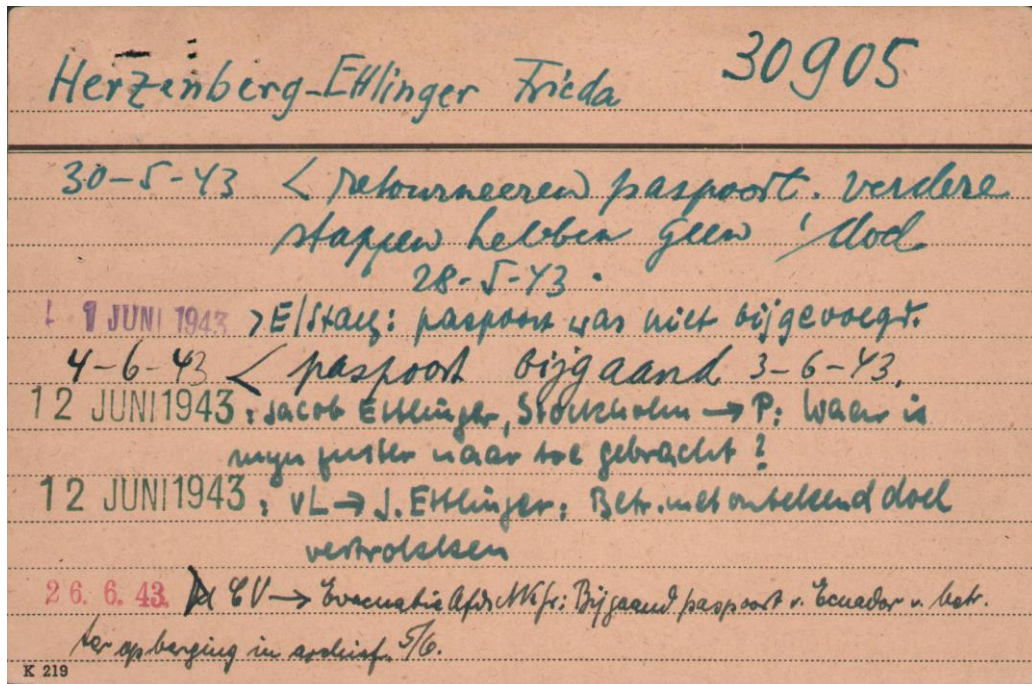 30905
Herzenberg-Ettlinger Frieda
30-5-43 < retourneeren paspoort. verdere
stappen hebben geen doel
28-5-43.
1 JUNI 1943 > E/Staeg: paspoort was niet bijgevoegd.
4-6-43 < paspoort bijgaand 3-6-43.
12 JUNI 1943: Jacob Ettlinger, Stockholm → P: Waar is
mijn zuster naar toe gebracht?
12 JUNI 1943: vL → J. Ettlinger: Betr. met onbekend doel
vertrokken
26. 6. 43. CV → Evacuatie Afd. : Bijgaand paspoort v. Ecuador v. betr.
ter opberging in archief. 5/6.
K 219